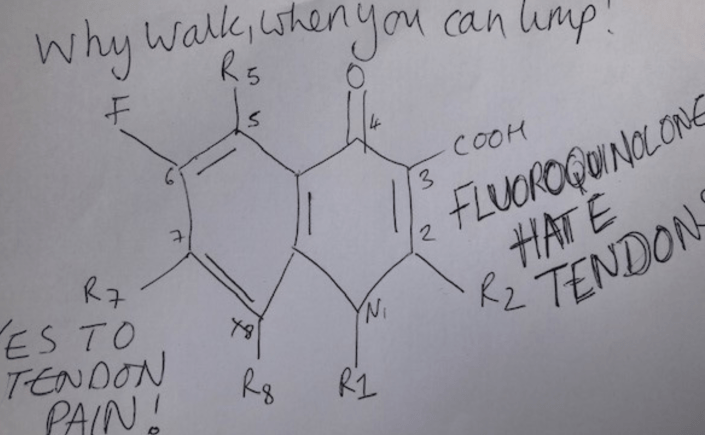 Why walk, when you can limp!
R5
O
F
5
4
COOH
6
3
FLUOROQUINOLONE
HATE
TENDONS
7
2
R7
X8
N1
R2
R8
R1
YES TO
TENDON
PAIN!